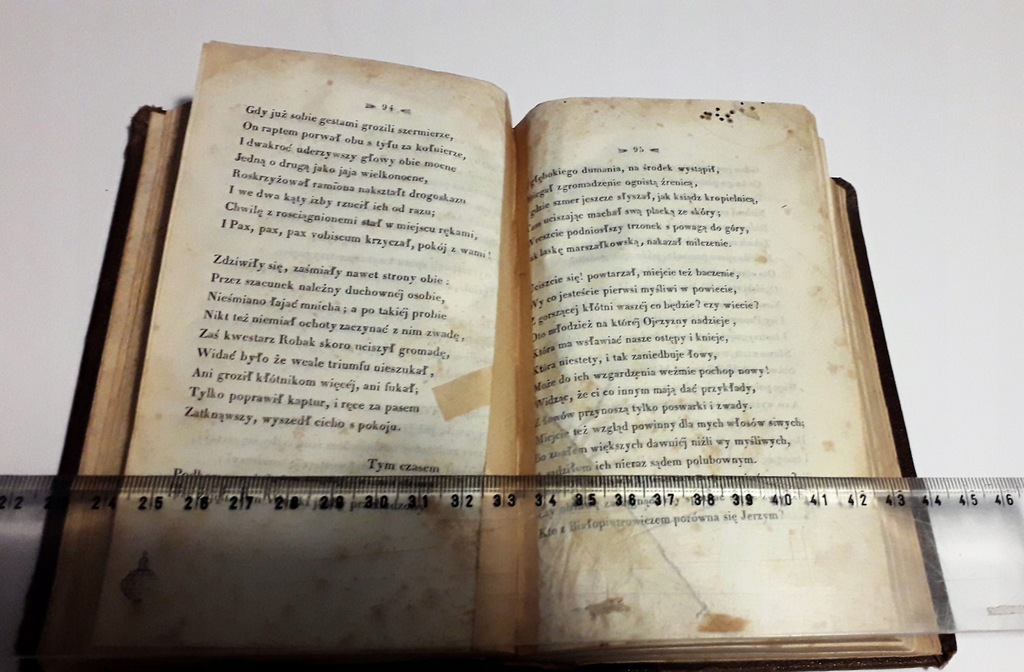 94
Gdy już sobie gestami grozili szermierze,
On raptem porwał obu s tyłu za kołnierze,
I dwakroć uderzywszy głowy obie mocne
Jedną o drugą jako jaja wielkonocne,
Roskrzyżował ramiona nakształt drogoskazu
I we dwa kąty izby rzucił ich od razu;
Chwilę z rosciągnionemi stał w miejscu rękami,
I Pax, pax, pax vobiscum krzyczał, pokój z wami!
Zdziwiły się, zaśmiały nawet strony obie:
Przez szacunek należny duchownéj osobie,
Nieśmiano łajać mnicha; a po takiéj probie
Nikt też niemiał ochoty zaczynać z nim zwadę,
Zaś kwestarz Robak skoro uciszył gromadę,
Widać było że wcale triumfu nieszukał,
Ani groził kłótnikom więcéj, ani fukał;
Tylko poprawił kaptur, i ręce za pasem
Zatknąwszy, wyszedł cicho s pokoju.
Tym czasem
95
głębokiego dumania, na środek wystąpił,
zgromadzenie ognistą źrenicą,
gdzie szmer jeszcze słyszał, jak ksiądz kropielnicą,
uciszając machał swą placką ze skóry;
Wreszcie podniosłszy trzonek s powagą do góry,
laskę marszałkowską, nakazał milczenie.
Uciszcie się! powtarzał, miejcie też baczenie,
Wy co jesteście pierwsi myśliwi w powiecie,
Z gorszącej kłótni waszéj co będzie? czy wiecie?
Oto młodzież na któréj Ojczyzny nadzieje,
Która ma wsławiać nasze ostępy i knieje,
Która niestety, i tak zaniedbuje łowy,
Może do ich wzgardzenia weźmie pochop nowy!
Widząc, że ci co innym mają dać przykłady,
Z łowów przynoszą tylko poswarki i zwady.
Miejcie też wzgląd powinny dla mych włosów siwych;
Bo znałem większych dawniéj niżli wy myśliwych,
A sądziłem ich nieraz sądem polubownym.
Kto z Białopiotrowiczem porówna się Jerzym?
22 23 24 25 26 27 28 29 30 31 32 33 34 35 36 37 38 39 40 41 42 43 44 45 46